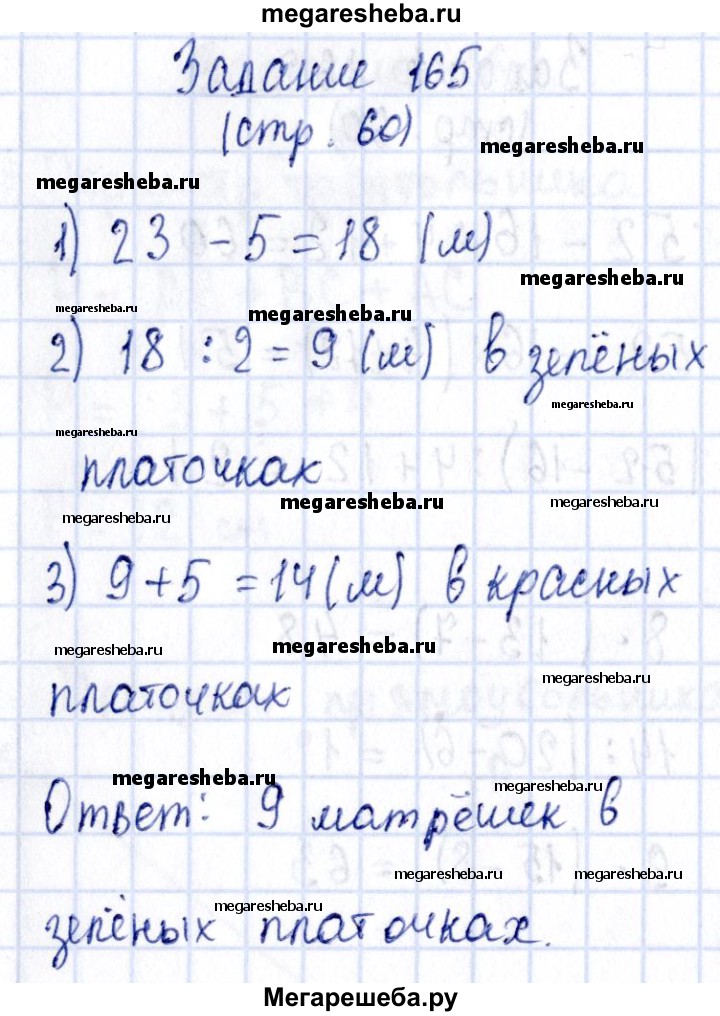 megaresheba.ru
Задание 165
(стр. 60)
megaresheba.ru
megaresheba.ru
1) 23 - 5 = 18 (м)
megaresheba.ru
megaresheba.ru
megaresheba.ru
2) 18 : 2 = 9 (м) в зелёных
megaresheba.ru
megaresheba.ru
платочках
megaresheba.ru
megaresheba.ru
megaresheba.ru
3) 9 + 5 = 14 (м) в красных
megaresheba.ru
megaresheba.ru
megaresheba.ru
платочках
megaresheba.ru
megaresheba.ru
Ответ: 9 матрёшек в
megaresheba.ru
megaresheba.ru
megaresheba.ru
зелёных платочках.
Мегарешеба.ру